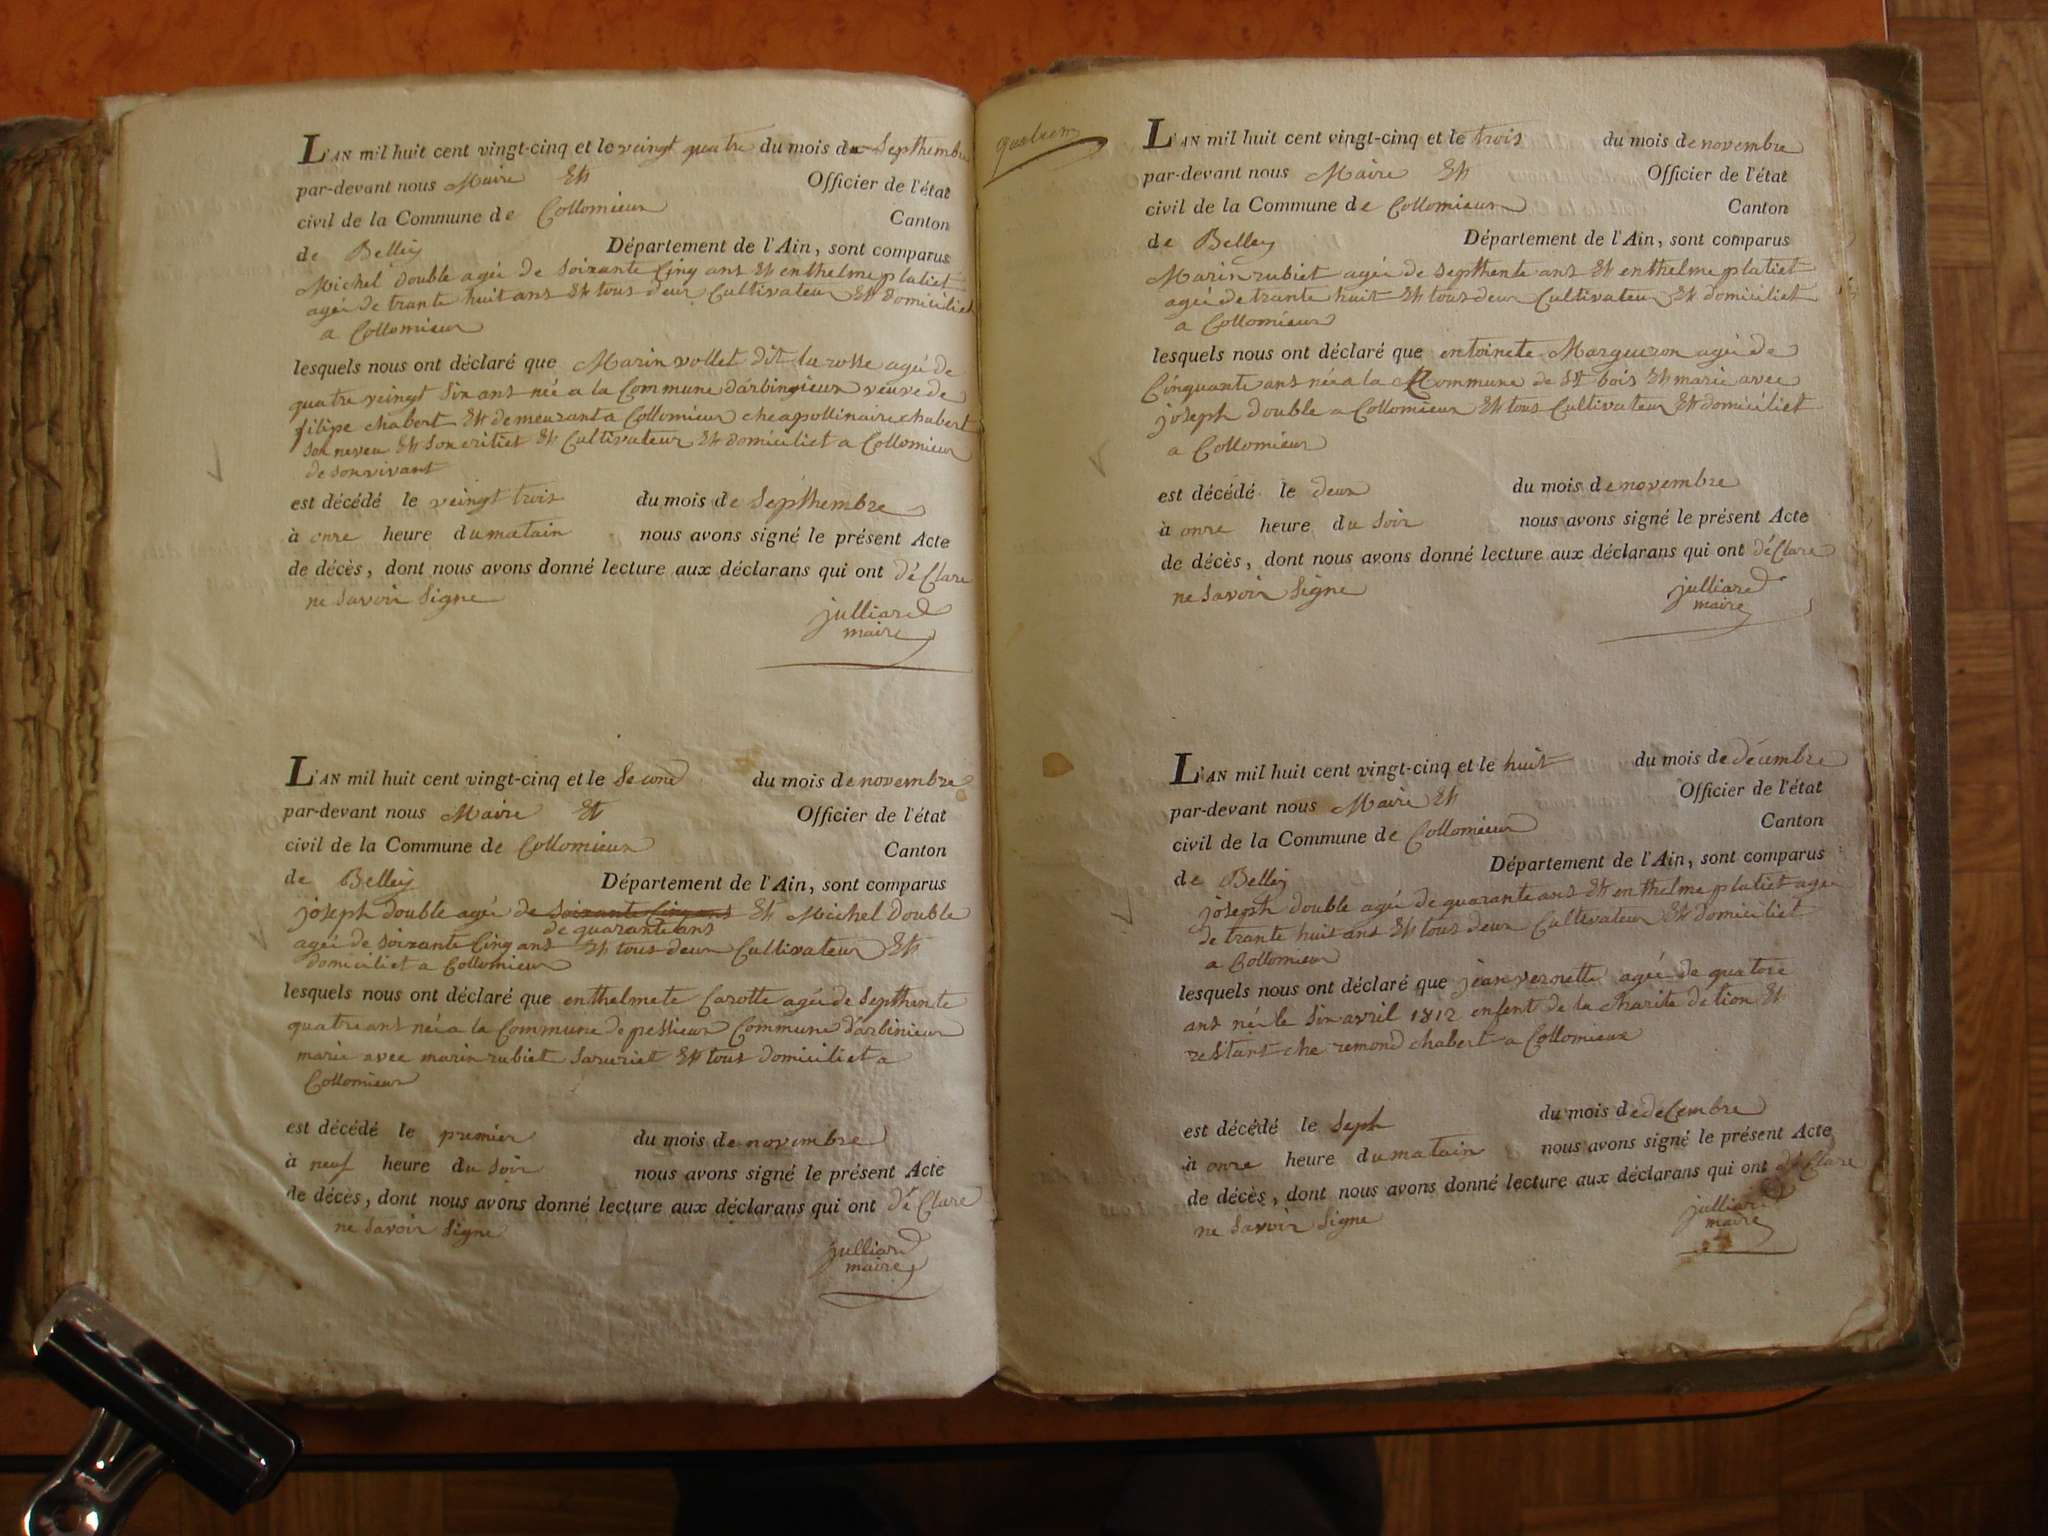 L'AN mil huit cent vingt-cinq et le veingt quatre du mois de Septhembre
par-devant nous Maire Et Officier de l'état
civil de la Commune de Collomieux Canton
de Belley Département de l'Ain, sont comparus
Michel double ageé de Soixante Cinq ans Et enthelme platiet
ageé de trante huit ans Et tous deux Cultivateur Et domiciliet
a Collomieux
lesquels nous ont déclaré que Marin vollet dit la rosse ageé de
quatre veingt Six ans neé a la Commune darbingieux veuve de
filipe chabert Et demeurant a Collomieux che apollinaire chabert
Son neveu Et Son eritiet Et Cultivateur Et domiciliet a Collomieux
de son vivant
est décédé le veingt trois du mois de Septhembre
à onre heure du matain nous avons signé le présent Acte
de décès, dont nous avons donné lecture aux déclarans qui ont déClare
ne Savoir Signe
julliard
maire
L'AN mil huit cent vingt-cinq et le Second du mois de novembre
par-devant nous Maire Et Officier de l'état
civil de la Commune de Collomieux Canton
de Belley Département de l'Ain, sont comparus
joseph double ageé de Soixante Cinq ans Et Michel Double
de quarante ans
ageé de Soixante Cinq ans Et tous deux Cultivateur Et
domiciliet a Collomieux
lesquels nous ont déclaré que enthelmete Carotte ageé de Septhente
quatre ans neé a la Commune de pessieux Commune darbinieux
marie avec marin rubiet Saruriet Et tous domiciliet a
Collomieux
est décédé le premier du mois de novembre
à neuf heure du Soir nous avons signé le présent Acte
de décès, dont nous avons donné lecture aux déclarans qui ont déClare
ne Savoir Signe
julliard
maire
L'AN mil huit cent vingt-cinq et le trois du mois de novembre
par-devant nous Maire Et Officier de l'état
civil de la Commune de Collomieux Canton
de Belley Département de l'Ain, sont comparus
Marin rubiet ageé de Septhente ans Et enthelme platiet
ageé de trante huit Et tous deux Cultivateur Et domiciliet
a Collomieux
lesquels nous ont déclaré que entoinete Margueron ageé de
Cinquante ans neé a la Commune de St bois Et marie avec
joseph double a Collomieux Et tous Cultivateur Et domiciliet
a Collomieux
est décédé le deux du mois de novembre
à onre heure du Soir nous avons signé le présent Acte
de décès, dont nous avons donné lecture aux déclarans qui ont déClare
ne Savoir Signe
julliard
maire
L'AN mil huit cent vingt-cinq et le huit du mois de décembre
par-devant nous Maire Et Officier de l'état
civil de la Commune de Collomieux Canton
de Belley Département de l'Ain, sont comparus
joseph double ageé de quarante ans Et enthelme platiet ageé
de trante huit ans Et tous deux Cultivateur Et domiciliet
a Collomieux
lesquels nous ont déclaré que jean vernette ageé de quatore
ans neé le Six avril 1812 enfent de la charite de lion Et
restant che remond chabert a Collomieux
est décédé le Seph du mois de deCembre
à onre heure du matain nous avons signé le présent Acte
de décès, dont nous avons donné lecture aux déclarans qui ont déClare
ne Savoir Signe
julliard
maire